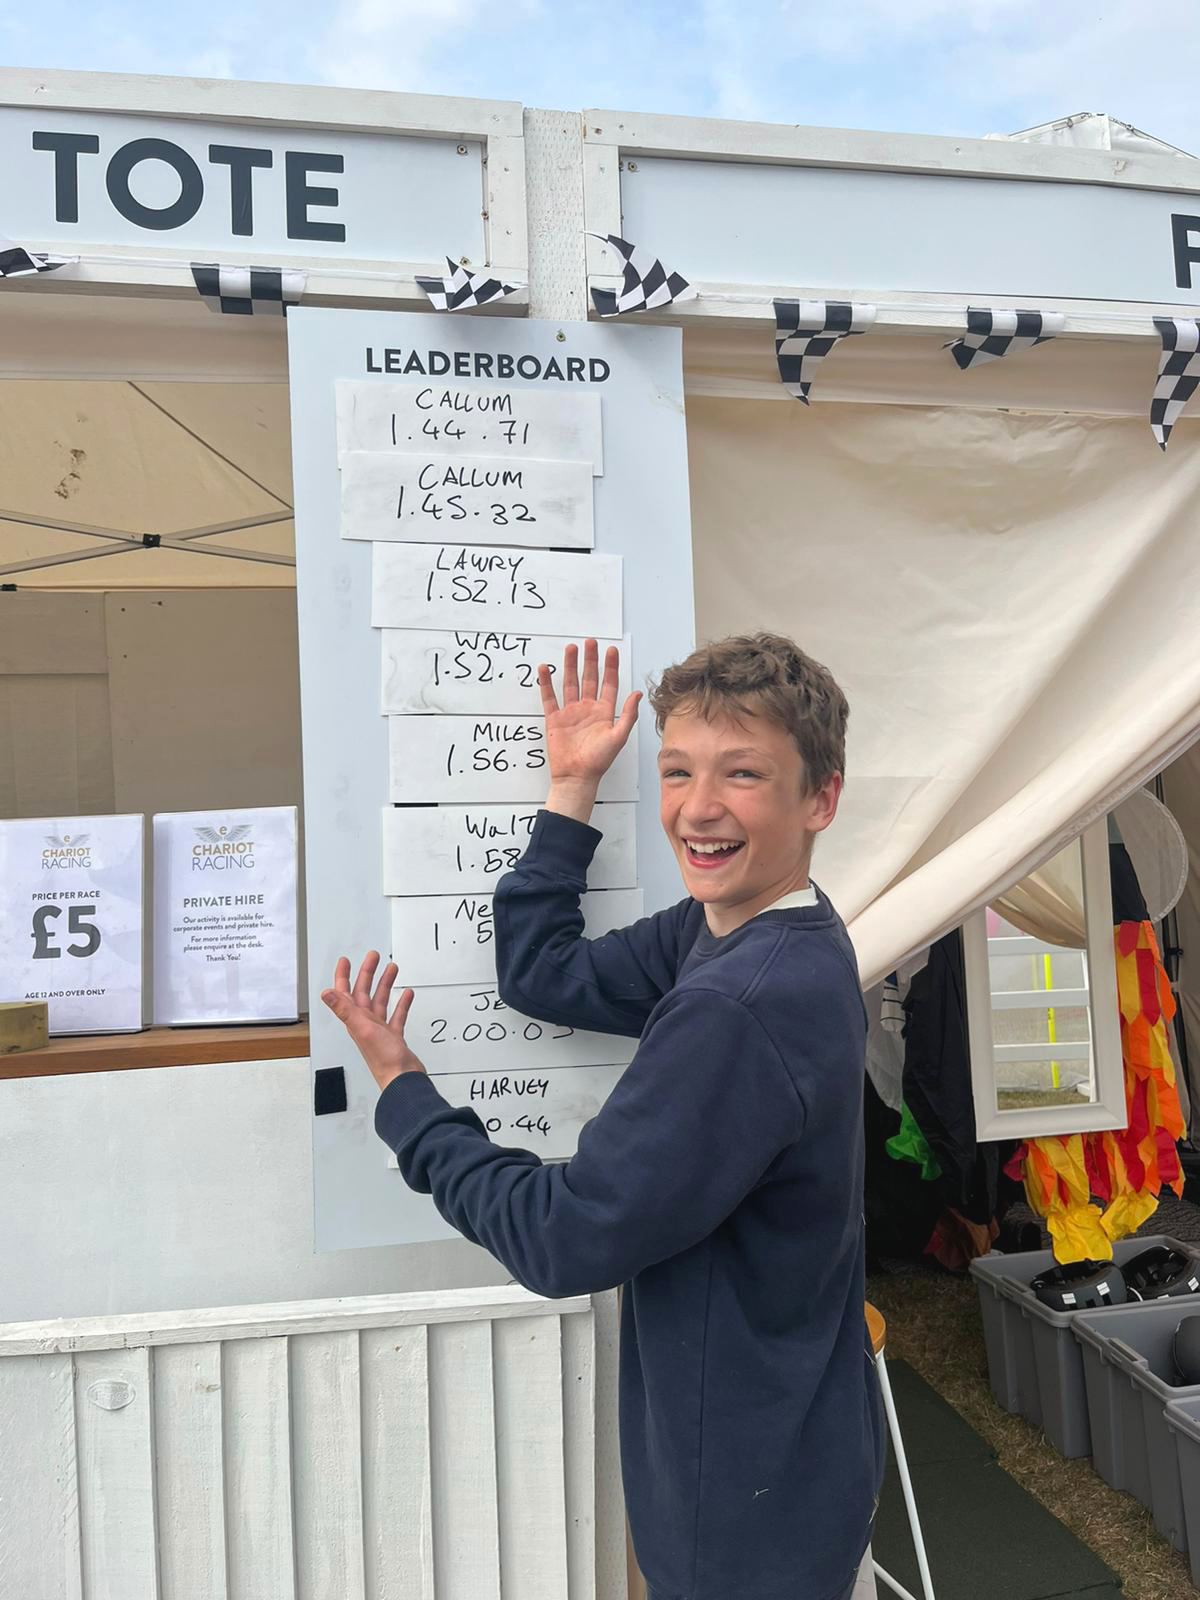 TOTE
LEADERBOARD
CALLUM
1.44.71
CALLUM
1.45.32
LAWRY
1.52.13
WALT
1.52.2
MILES
1.56.5
Walt
1.58
HARVEY
0.44
e
CHARIOT
RACING
PRICE PER RACE
£5
AGE 12 AND OVER ONLY
e
CHARIOT
RACING
PRIVATE HIRE
Our activity is available for
corporate events and private hire.
For more information
please enquire at the desk.
Thank You!